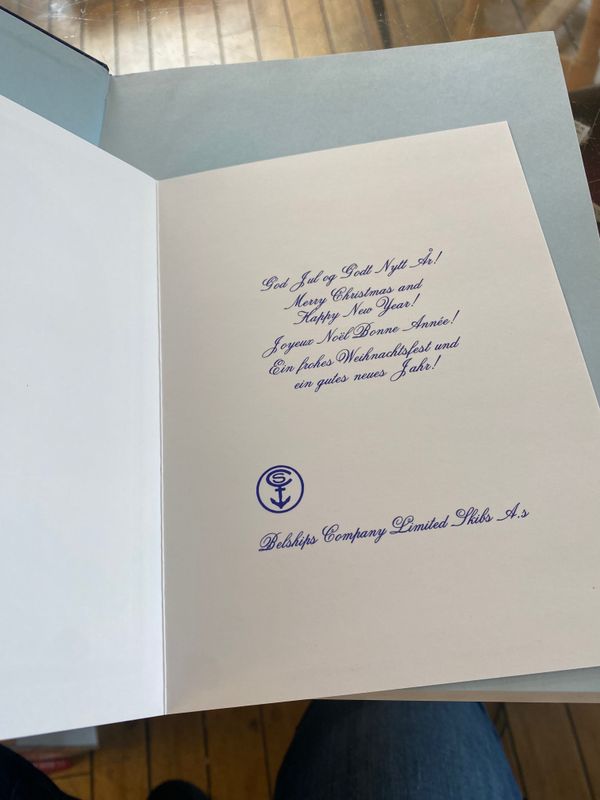 God Jul og Godt Nytt År!
Merry Christmas and
Happy New Year!
Joyeux Noël Bonne Année!
Ein frohes Weihnachtsfest und
ein gutes neues Jahr!
CS
Belships Company Limited Skibs A.s